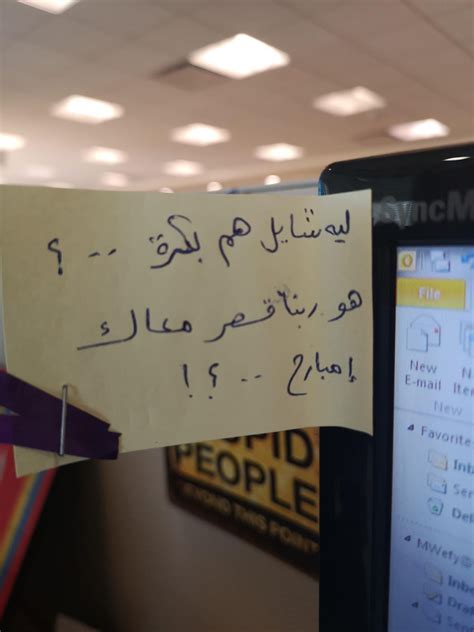 ليه شايل هم بكرة .. ؟
هو ربنا قصر معاك
إمبارح .. ؟ !
SyncM
File
New
E-mail
New
Ite
New
Favorite
Inb
Sen
Del
MWefy@
Inbo
Draf
Sen
PEOPLE
BEYOND THIS POINT